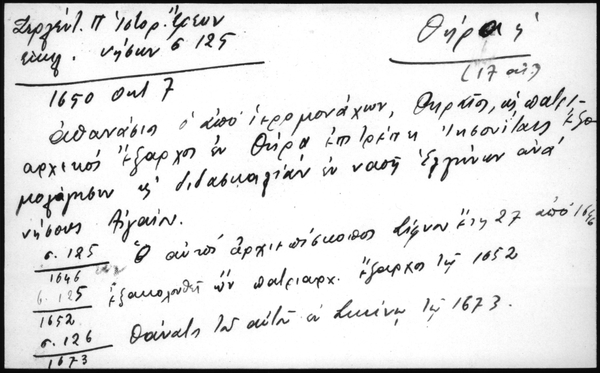 Σεργέντ. Π Ἱστορ. Ἐρευν
νήσων σ 125
Θήρα ἡ
(17 αἰ)
1650 Οκτ 7
Ἀθανάσιος ὁ ἀπό ἱερομονάχων, Θηραῖος, ὡς πατρι-
αρχικός ἔξαρχος ἐν Θήρᾳ ἐπιτρέπει Ἰησουίταις ἐξο-
μολόγησιν καί διδασκαλίαν ἐν ναοῖς Ἑλλήνων ἀνά
νήσους Αἰγαίου.
σ. 125
1646
Ὁ αὐτός ἀρχιεπίσκοπος Σίφνου ἔτη 27 ἀπό 1646
σ. 125
1652
ἐξακολουθεῖ ὤν πατριαρχ. ἔξαρχος τῷ 1652
σ. 126
1673
θάνατος τοῦ αὐτοῦ ἐν Σικίνῳ τῷ 1673.